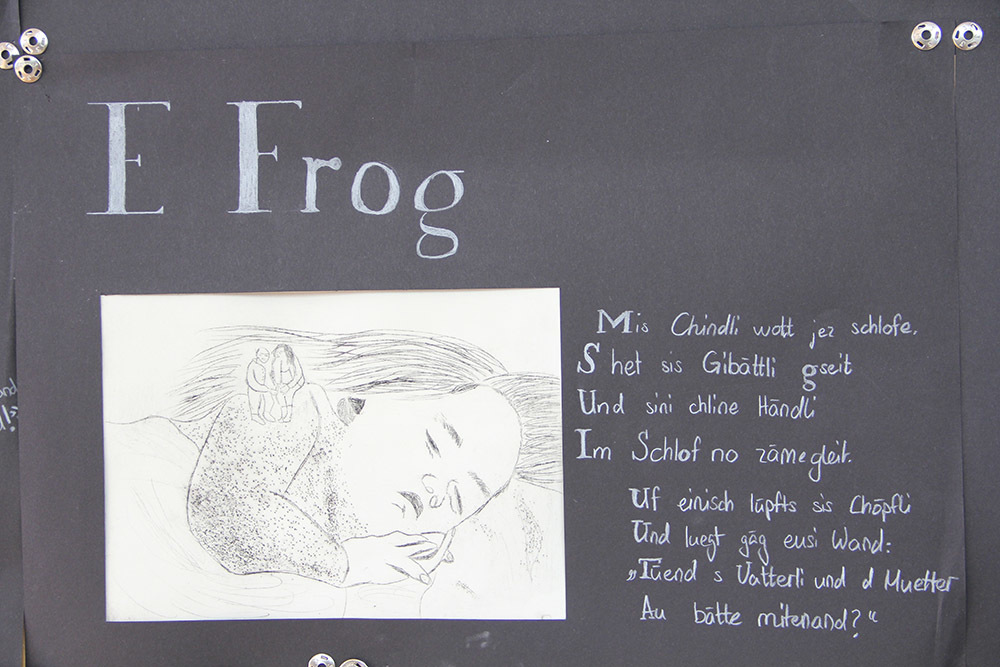 E Frog
Mis Chindli wott jez schlofe.
S het sis Gibättli gseit
Und sini chline Händli
Im Schlof no zämegleit.
Uf einisch lüpfts sis Chöpfli
Und luegt gäg eusi Wand:
„Tüend s Vatterli und d Muetter
Au bätte mitenand?“